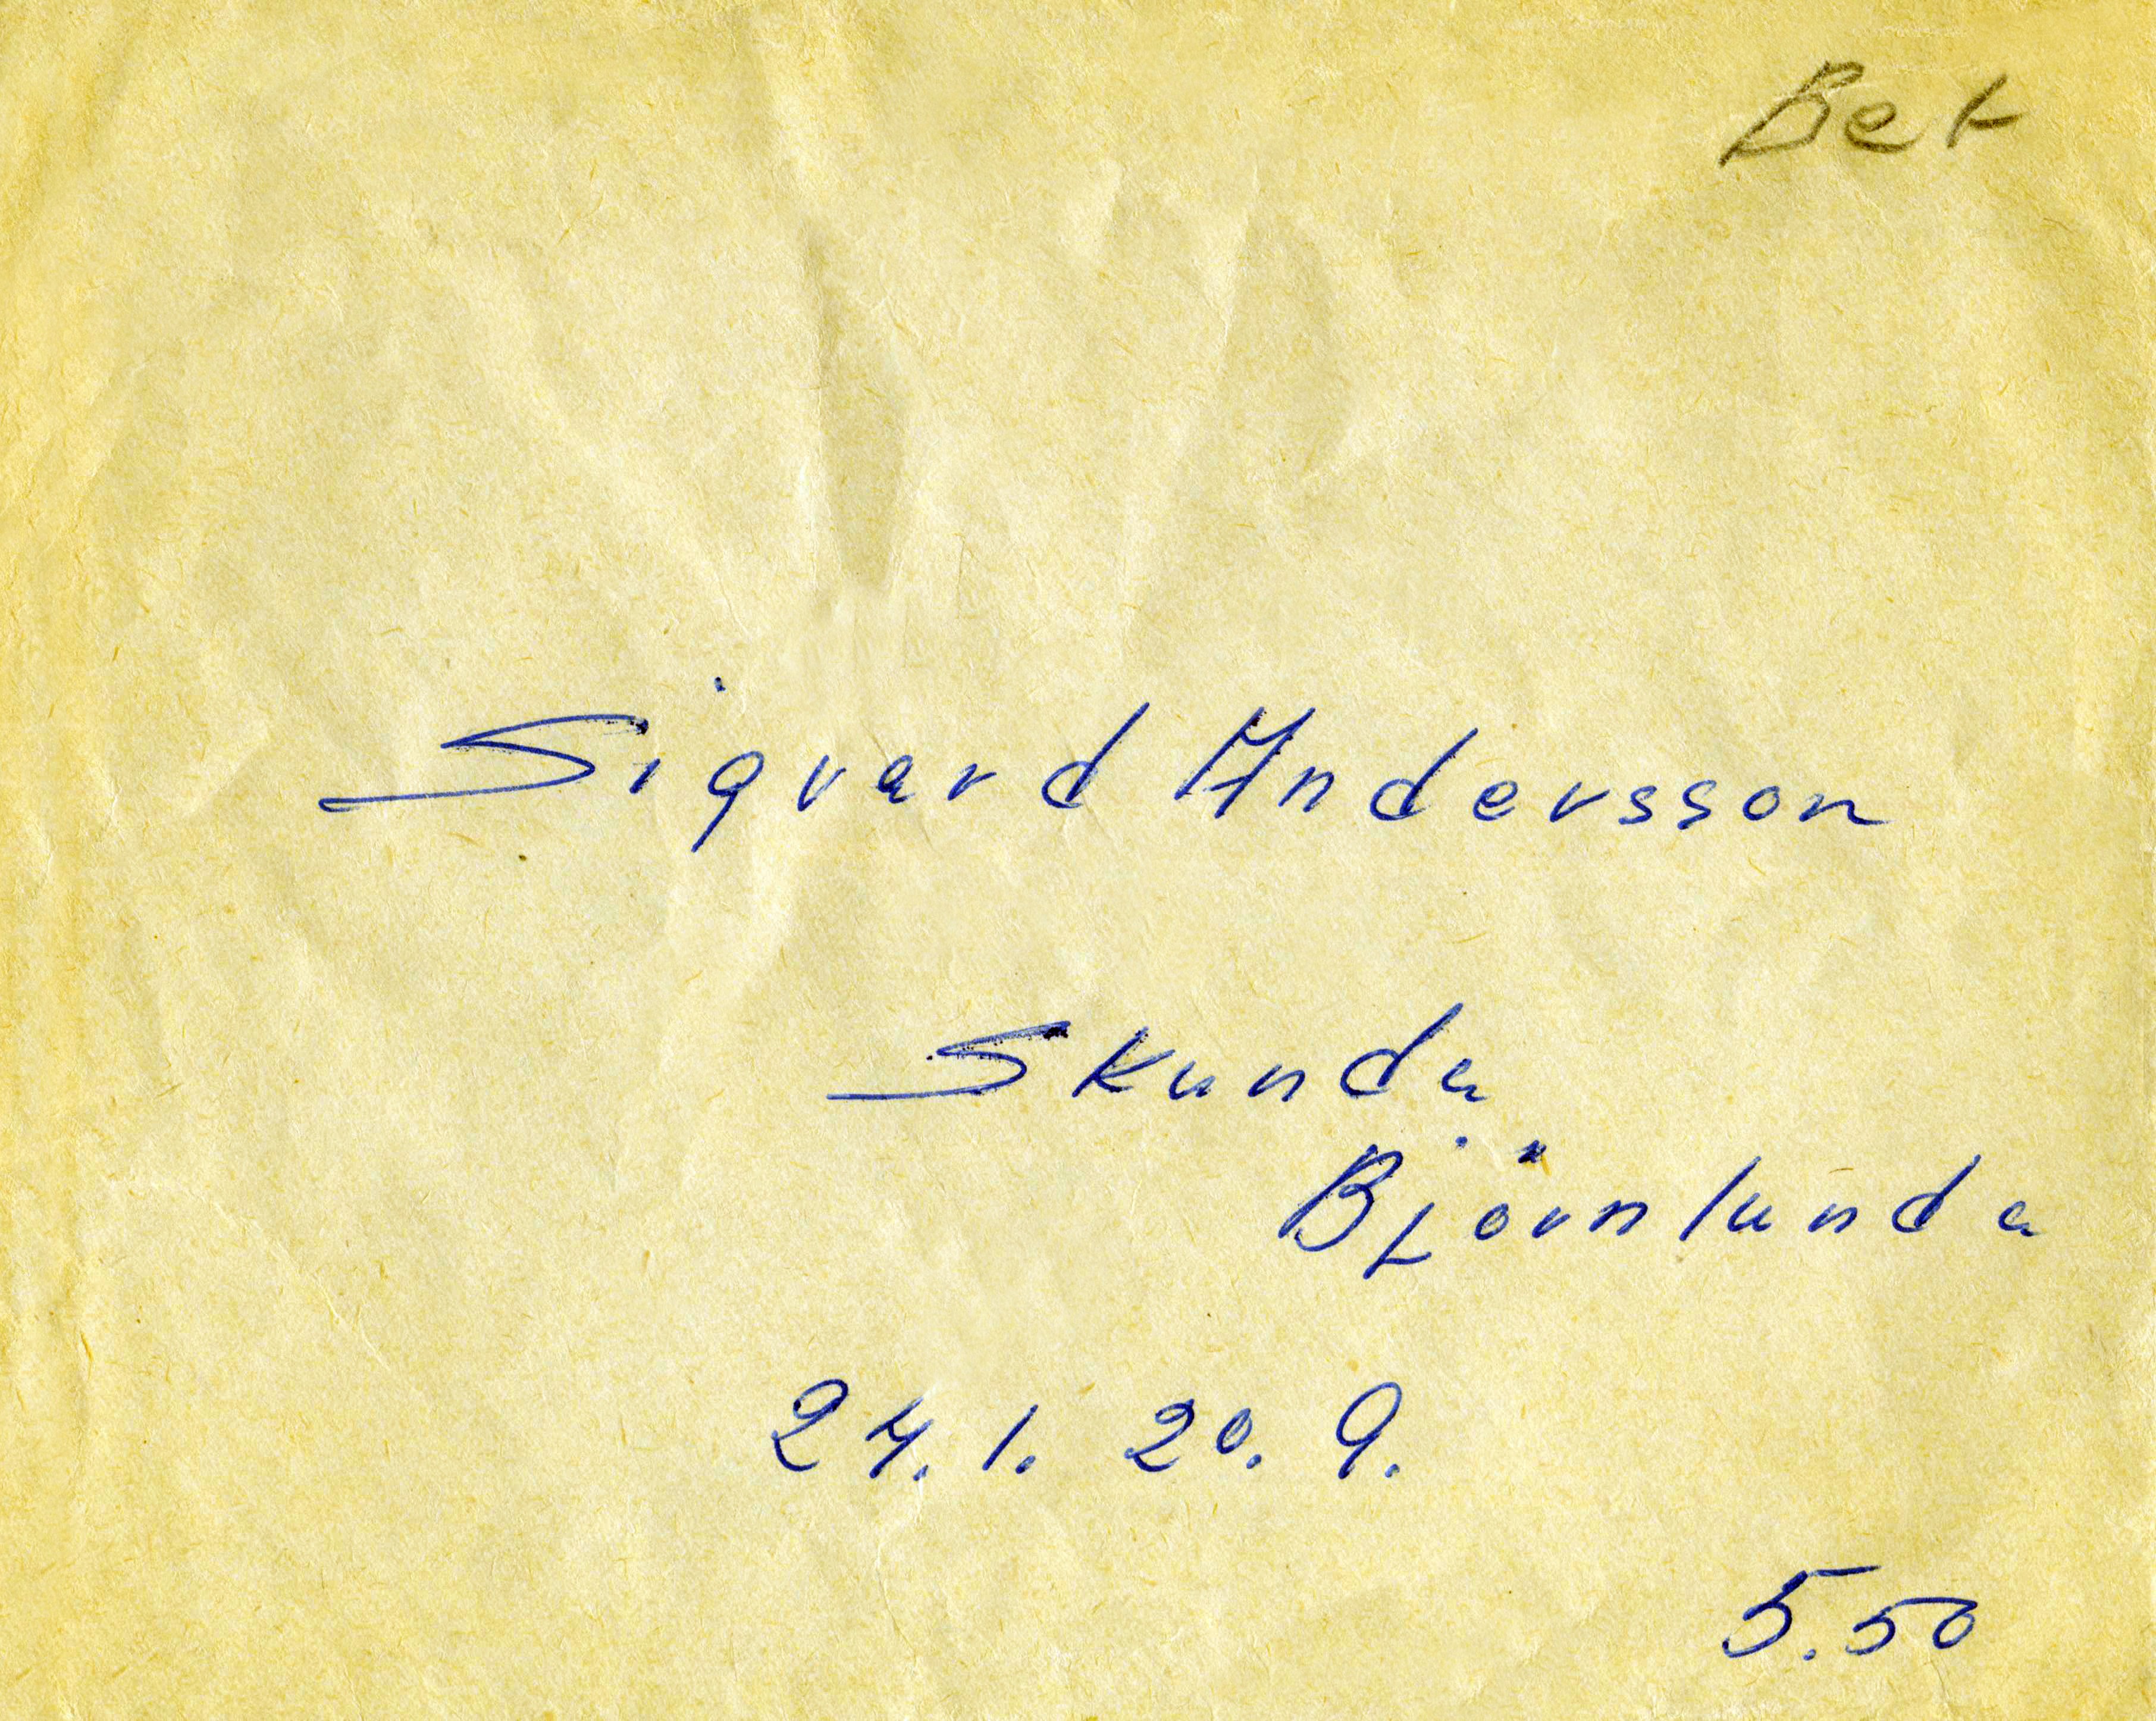 Bet
Sigvard Andersson
Skunda
Björnlunda
24.1. 20. 9.
5.50